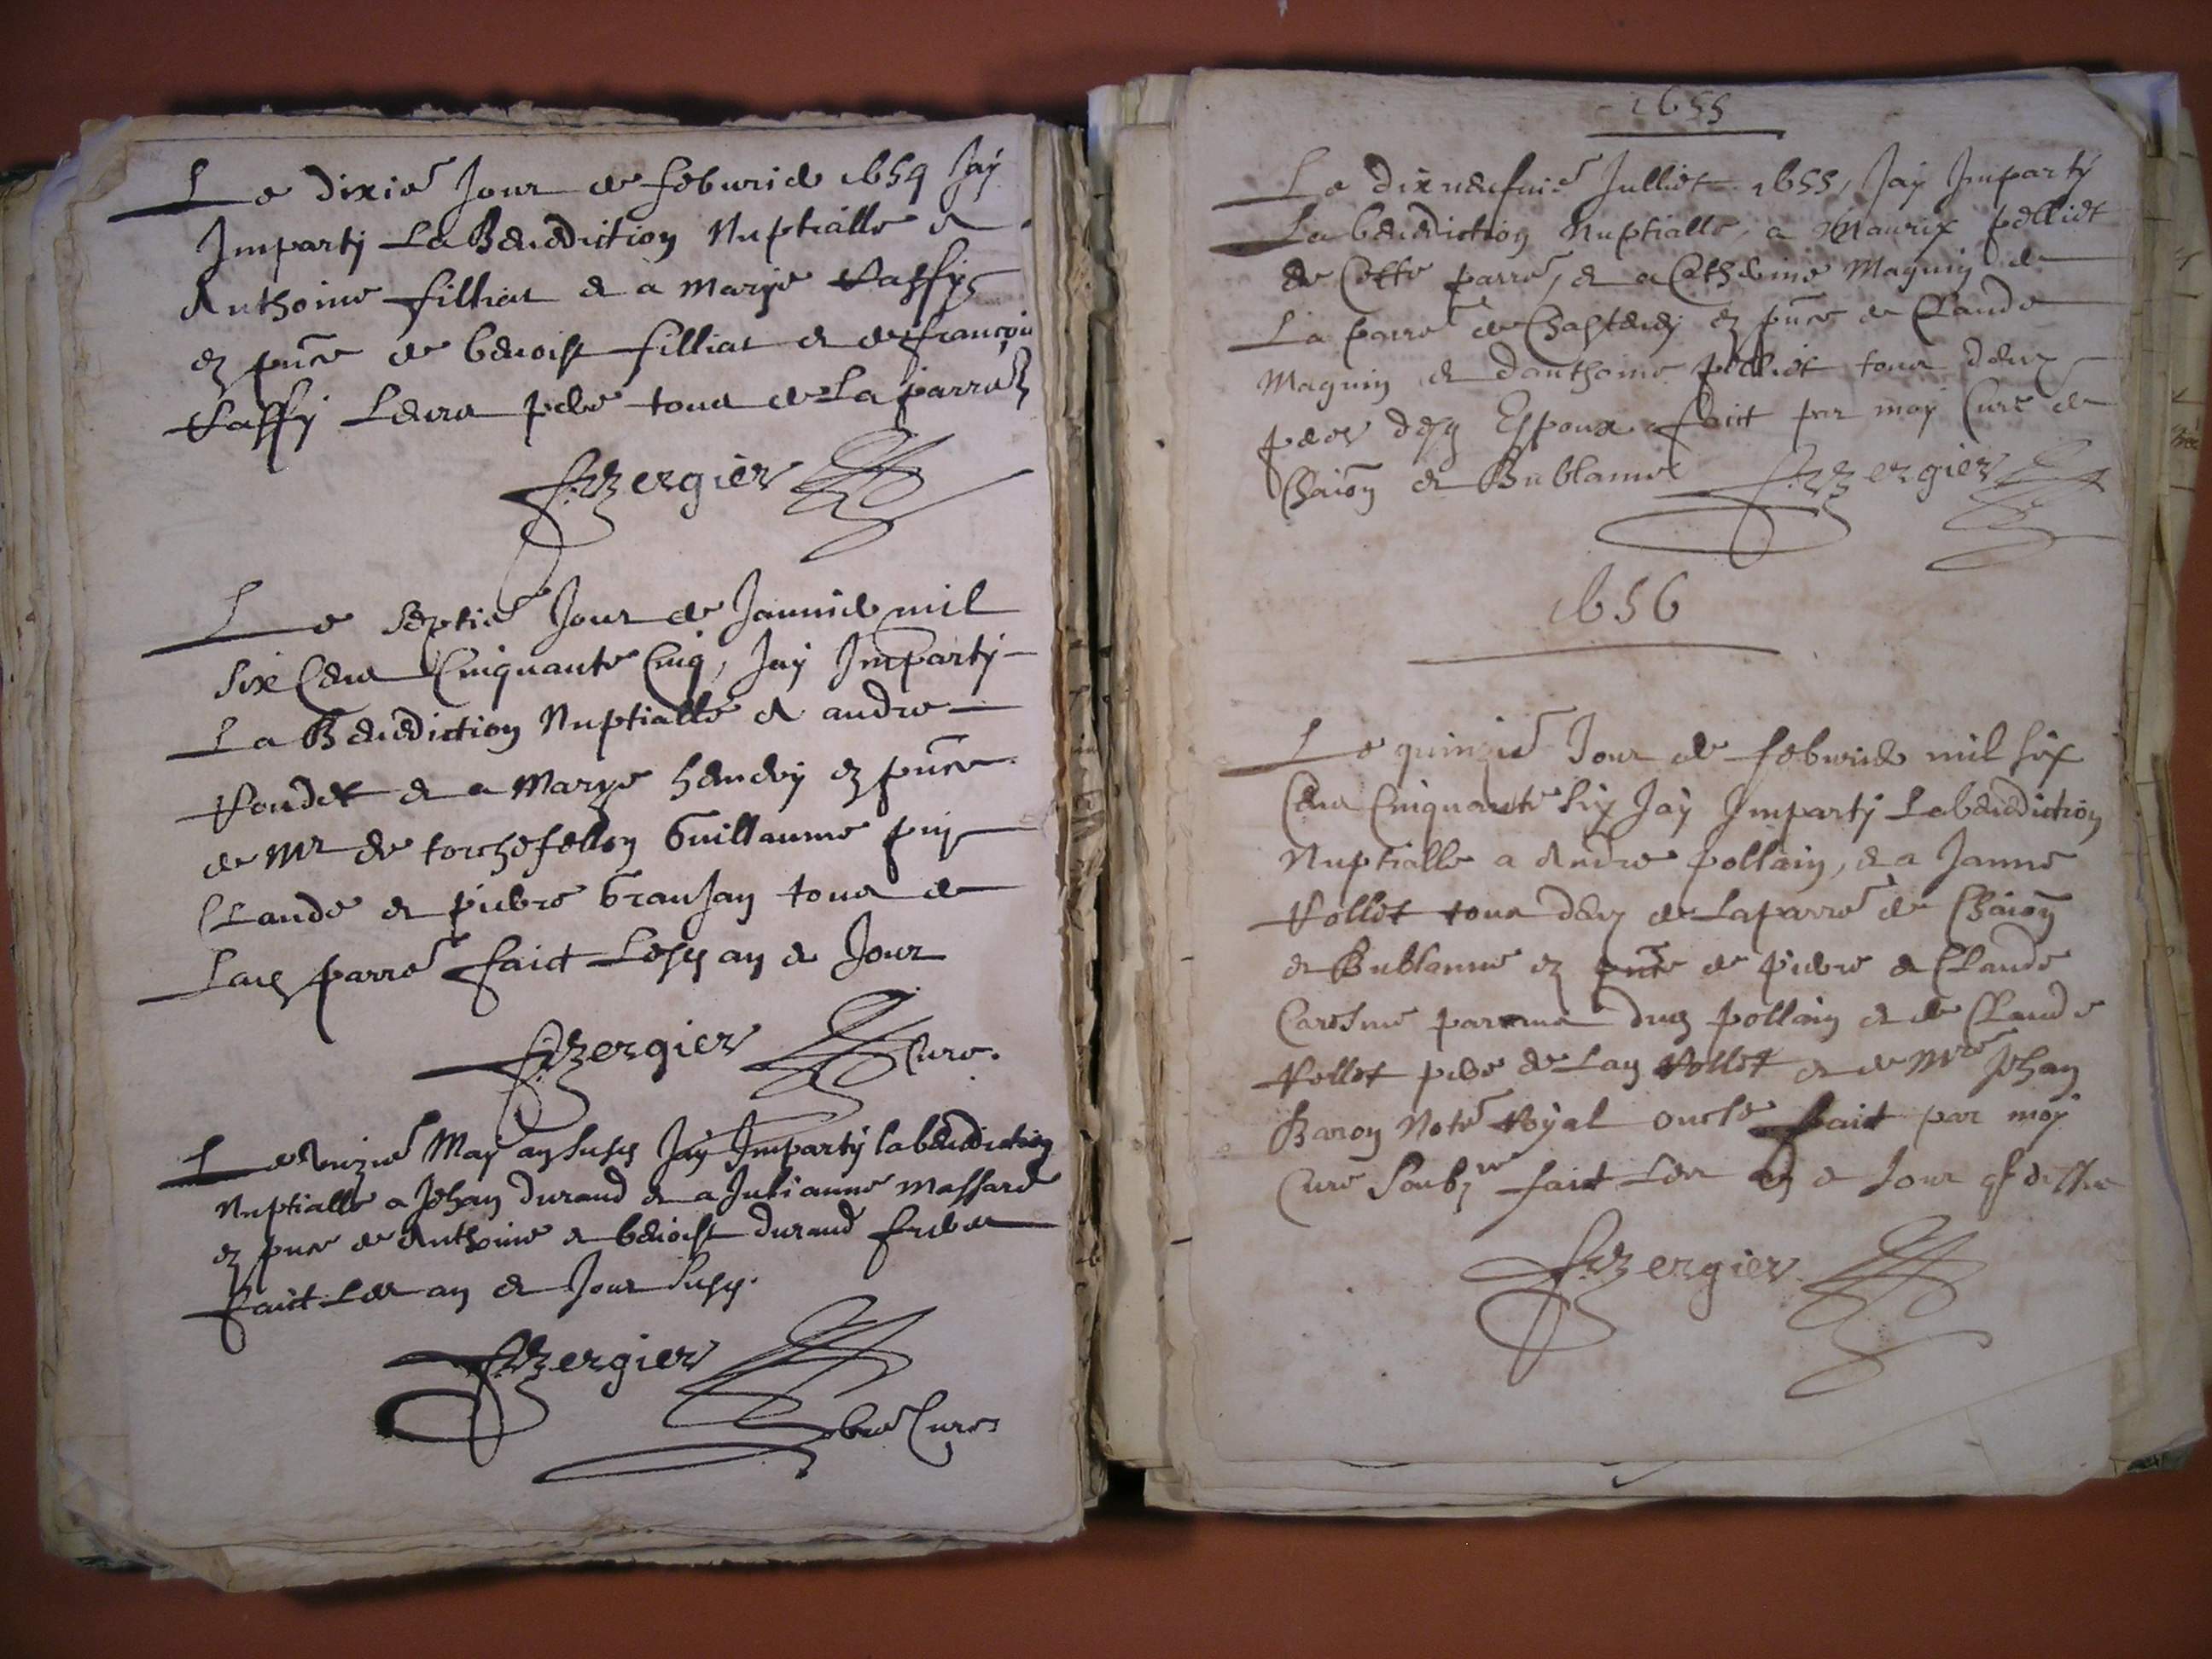 Le dixie Jour de febvrier 1654 Jay
Imparty La Benediction Nuptialle a
Anthoine filliat & a Marye Vassy
en pnce de benoist filliat & de françois
Vassy Leurs peres tous de La parre
F. Bergier
Le Septie Jour de Janvier mil
Six Cens Cinquante Cinq, Jay Imparty
La Benediction Nuptialle a andre
Voudet & a Marye hendey en pnce
de Mr de torchefellon Guillaume puy
Claude & pierre Granjan tous de
Lad parre faict Lesd an & Jour
F. Bergier Cure.
Le Unzie May an susd Jay Imparty la benediction
Nuptialle a Jehan durand & a Julianne Massard
en pnce de Anthoine & benoist durand freres
faict Les an & Jour susd.
F. Bergier
Cure
1655
Le dixneufvie Julliet 1655, Jay Imparty
La benediction Nuptialle, a Maurix pelliet
de Cette parre, & a Catherine Magnin de
La parre de en pnce de Claude
Magnin & danthoine pelliet tous deux
peres desd Espoux faict par moy Cure de
Chaion & Bublanne F. Bergier
1656
Le quinzie Jour de febvrier mil six
Cens Cinquante Six Jay Imparty La benediction
Nuptialle a Andre pollain, & a Janne
Vollet tous deux de La parre de Chaion
& Bublanne en pnce de pierre & Claude
Caresme parens dud pollain & de Claude
Vollet pere de Lad Vollet & de Mre Jehan
Baron Notre Royal oncle faict par moy
Cure Soubz faict Les an & Jour q dessus
F. Bergier